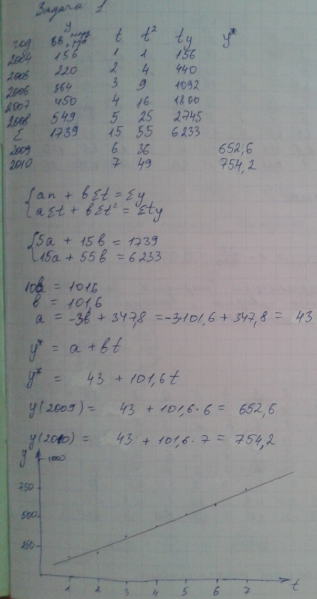 Задача 1
y
год t t² ty y*
2004 156 1 1 156
2005 220 2 4 440
2006 364 3 9 1092
2007 450 4 16 1800
2008 549 5 25 2745
Σ 1739 15 55 6233
2009 6 36 652,6
2010 7 49 754,2
{an + bΣt = Σy
aΣt + bΣt² = Σty
{5a + 15b = 1739
15a + 55b = 6233
10b = 1016
b = 101,6
a = -3b + 347,8 = -3·101,6 + 347,8 = 43
y* = a + bt
y* = 43 + 101,6t
y(2009) = 43 + 101,6·6 = 652,6
y(2010) = 43 + 101,6·7 = 754,2
y
1000
750
500
250
1 2 3 4 5 6 7 t